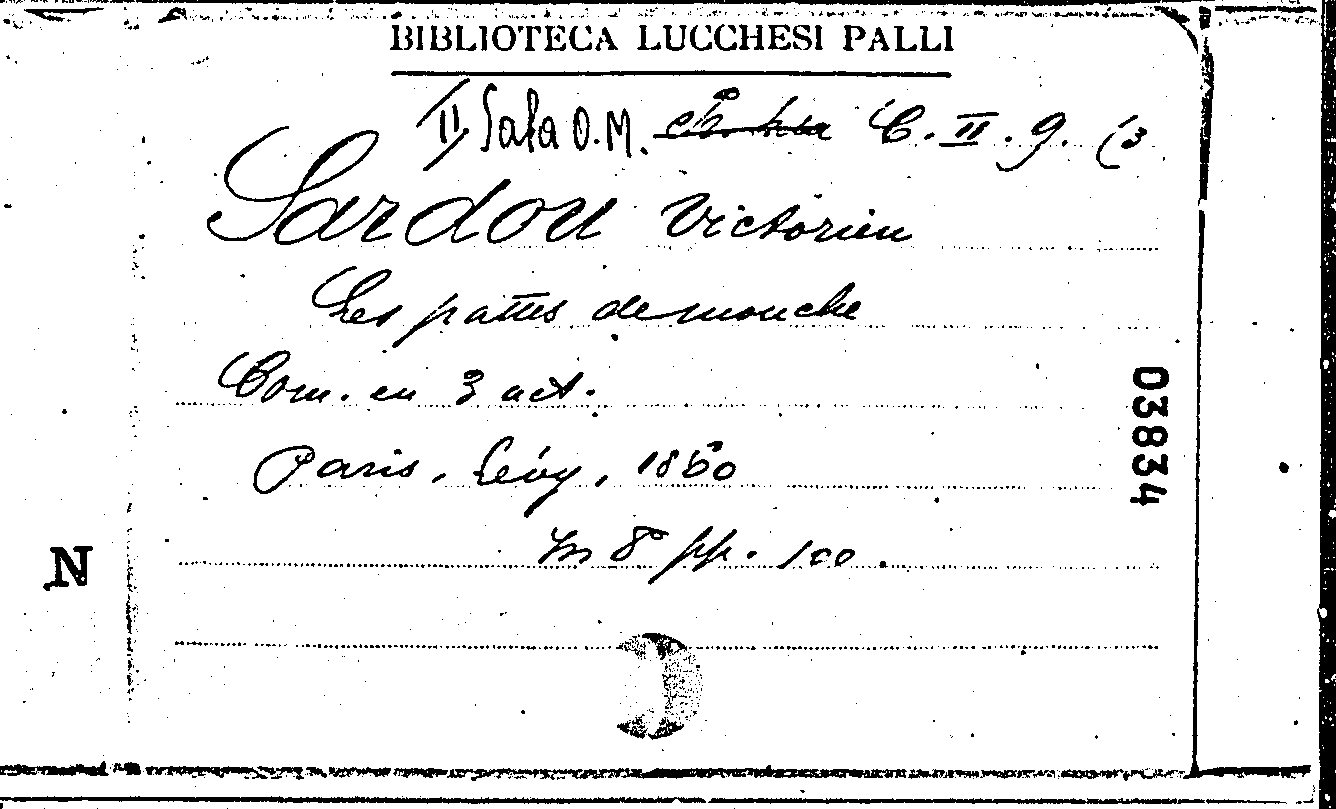 BIBLIOTECA LUCCHESI PALLI
II Sala O.M. C. II. 9. (3
Sardou Victorien
Les pattes de mouche
Com. en 3 act.
Paris, Lévy, 1860
In 8° pp. 100.
03834
N